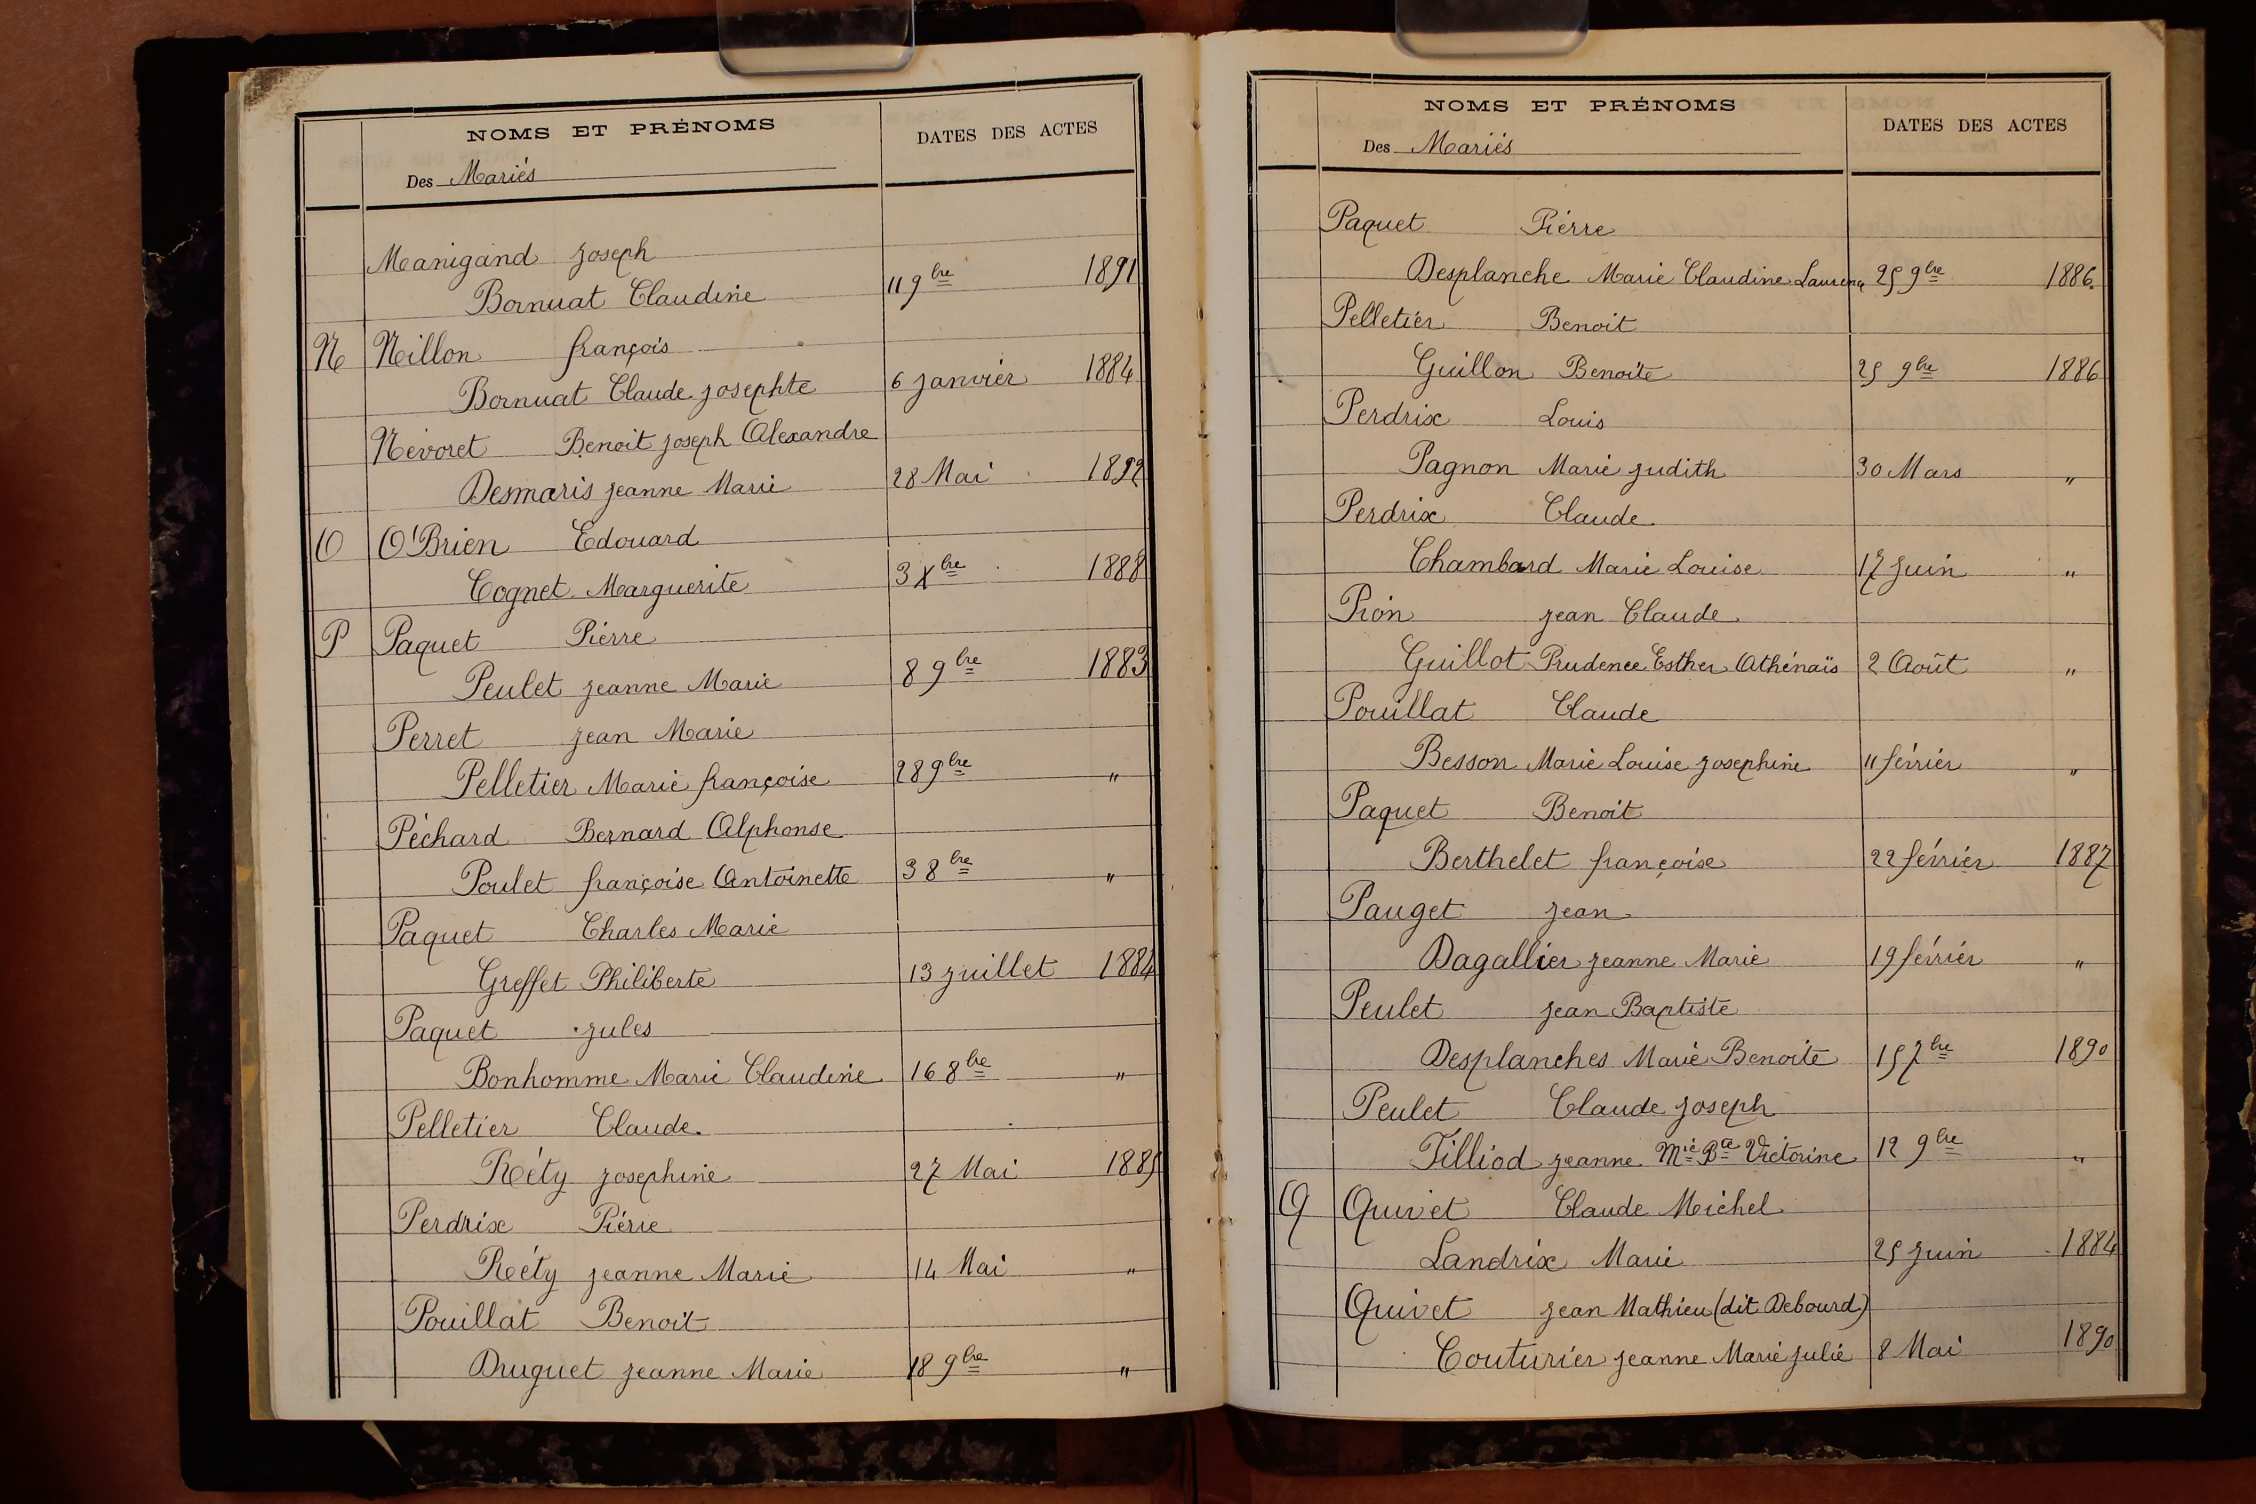 NOMS ET PRÉNOMS
DATES DES ACTES
Des Mariés
Manigand Joseph
Bornuat Claudine 11 9bre 1891
N Nillon françois
Bornuat Claude Josephte 6 Janvier 1884
Névoret Benoit Joseph Alexandre
Desmaris Jeanne Marie 28 Mai 1892
O O'Brien Edouard
Cognet Marguerite 3 Xbre 1888
P Paquet Pierre
Peulet Jeanne Marie 8 9bre 1883
Perret Jean Marie
Pelletier Marie françoise 28 9bre "
Péchard Bernard Alphonse
Poulet françoise Antoinette 3 8bre "
Paquet Charles Marie
Greffet Philiberte 13 Juillet 1884
Paquet Jules
Bonhomme Marie Claudine 16 8bre "
Pelletier Claude
Réty Josephine 27 Mai 1885
Perdrix Pierre
Réty Jeanne Marie 14 Mai "
Pouillat Benoit
Druguet Jeanne Marie 18 9bre "
NOMS ET PRÉNOMS
DATES DES ACTES
Des Mariés
Paquet Pierre
Desplanche Marie Claudine Laurence 25 9bre 1886
Pelletier Benoit
Guillon Benoite 25 9bre 1886
Perdrix Louis
Pagnon Marie Judith 30 Mars "
Perdrix Claude
Chambard Marie Louise 17 Juin "
Pion Jean Claude
Guillot Prudence Esther Athénaïs 2 Août "
Pouillat Claude
Besson Marie Louise Josephine 11 février "
Paquet Benoit
Berthelet françoise 22 février 1887
Pauget Jean
Dagallier Jeanne Marie 19 février "
Peulet Jean Baptiste
Desplanches Marie Benoite 15 7bre 1890
Peulet Claude Joseph
Tilliod Jeanne Mie Bte Victorine 12 9bre "
Q Quivet Claude Michel
Landrix Marie 25 Juin 1884
Quivet Jean Mathieu (dit Debourd)
Couturier Jeanne Marie Julie 8 Mai 1890